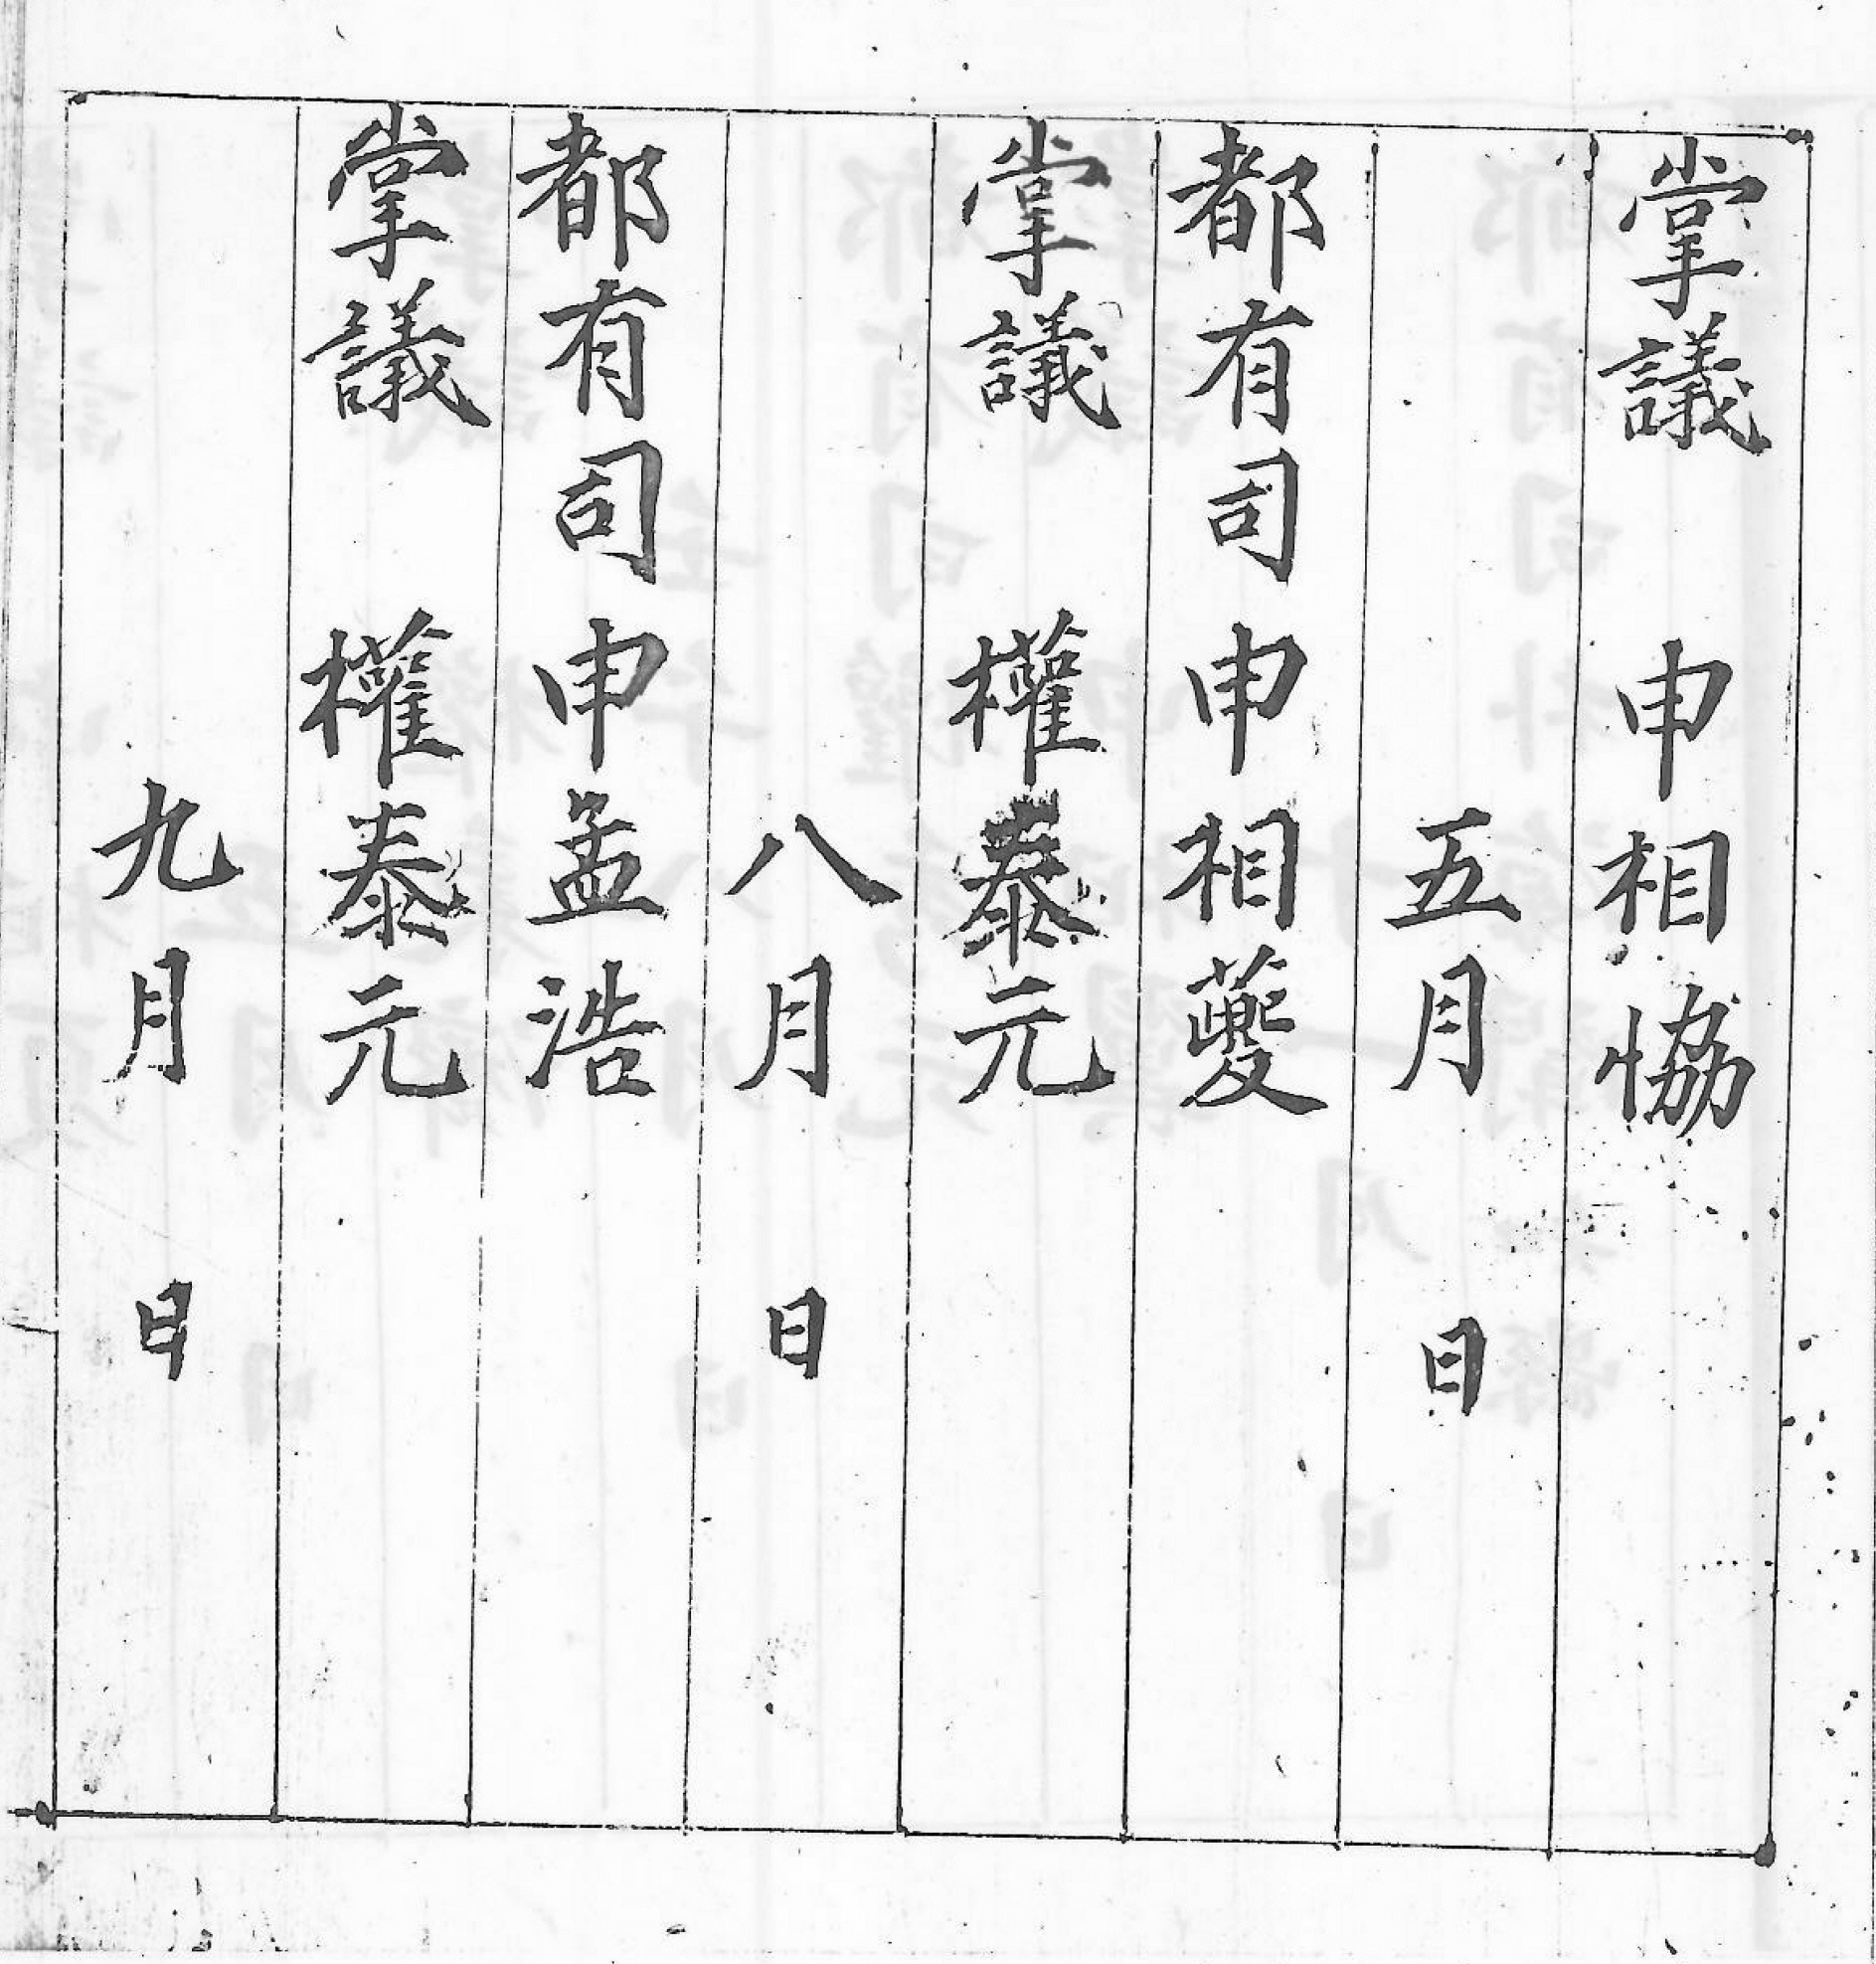 掌議 申相恊
五月 日
都有司 申相夔
掌議 權泰元
八月 日
都有司 申孟浩
掌議 權泰元
九月 日